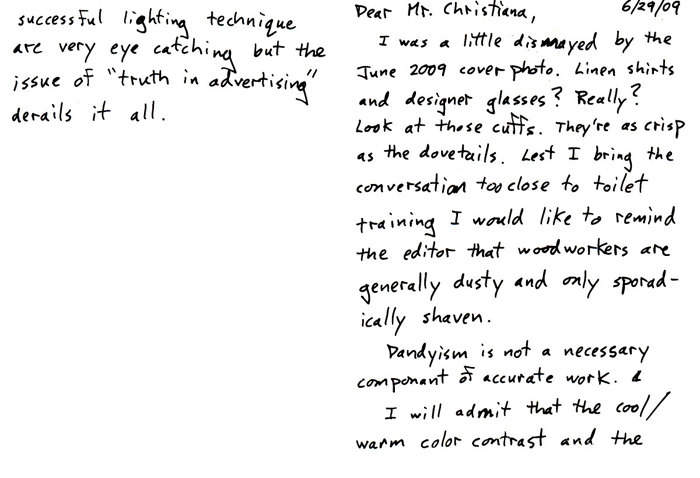 Dear Mr. Christiana, 6/29/09
I was a little dismayed by the
June 2009 cover photo. Linen shirts
and designer glasses? Really?
Look at those cuffs. They're as crisp
as the dovetails. Lest I bring the
conversation too close to toilet
training I would like to remind
the editor that woodworkers are
generally dusty and only sporad-
ically shaven.
Dandyism is not a necessary
componant of accurate work.
I will admit that the cool/
warm color contrast and the
successful lighting technique
are very eye catching but the
issue of "truth in advertising"
derails it all.